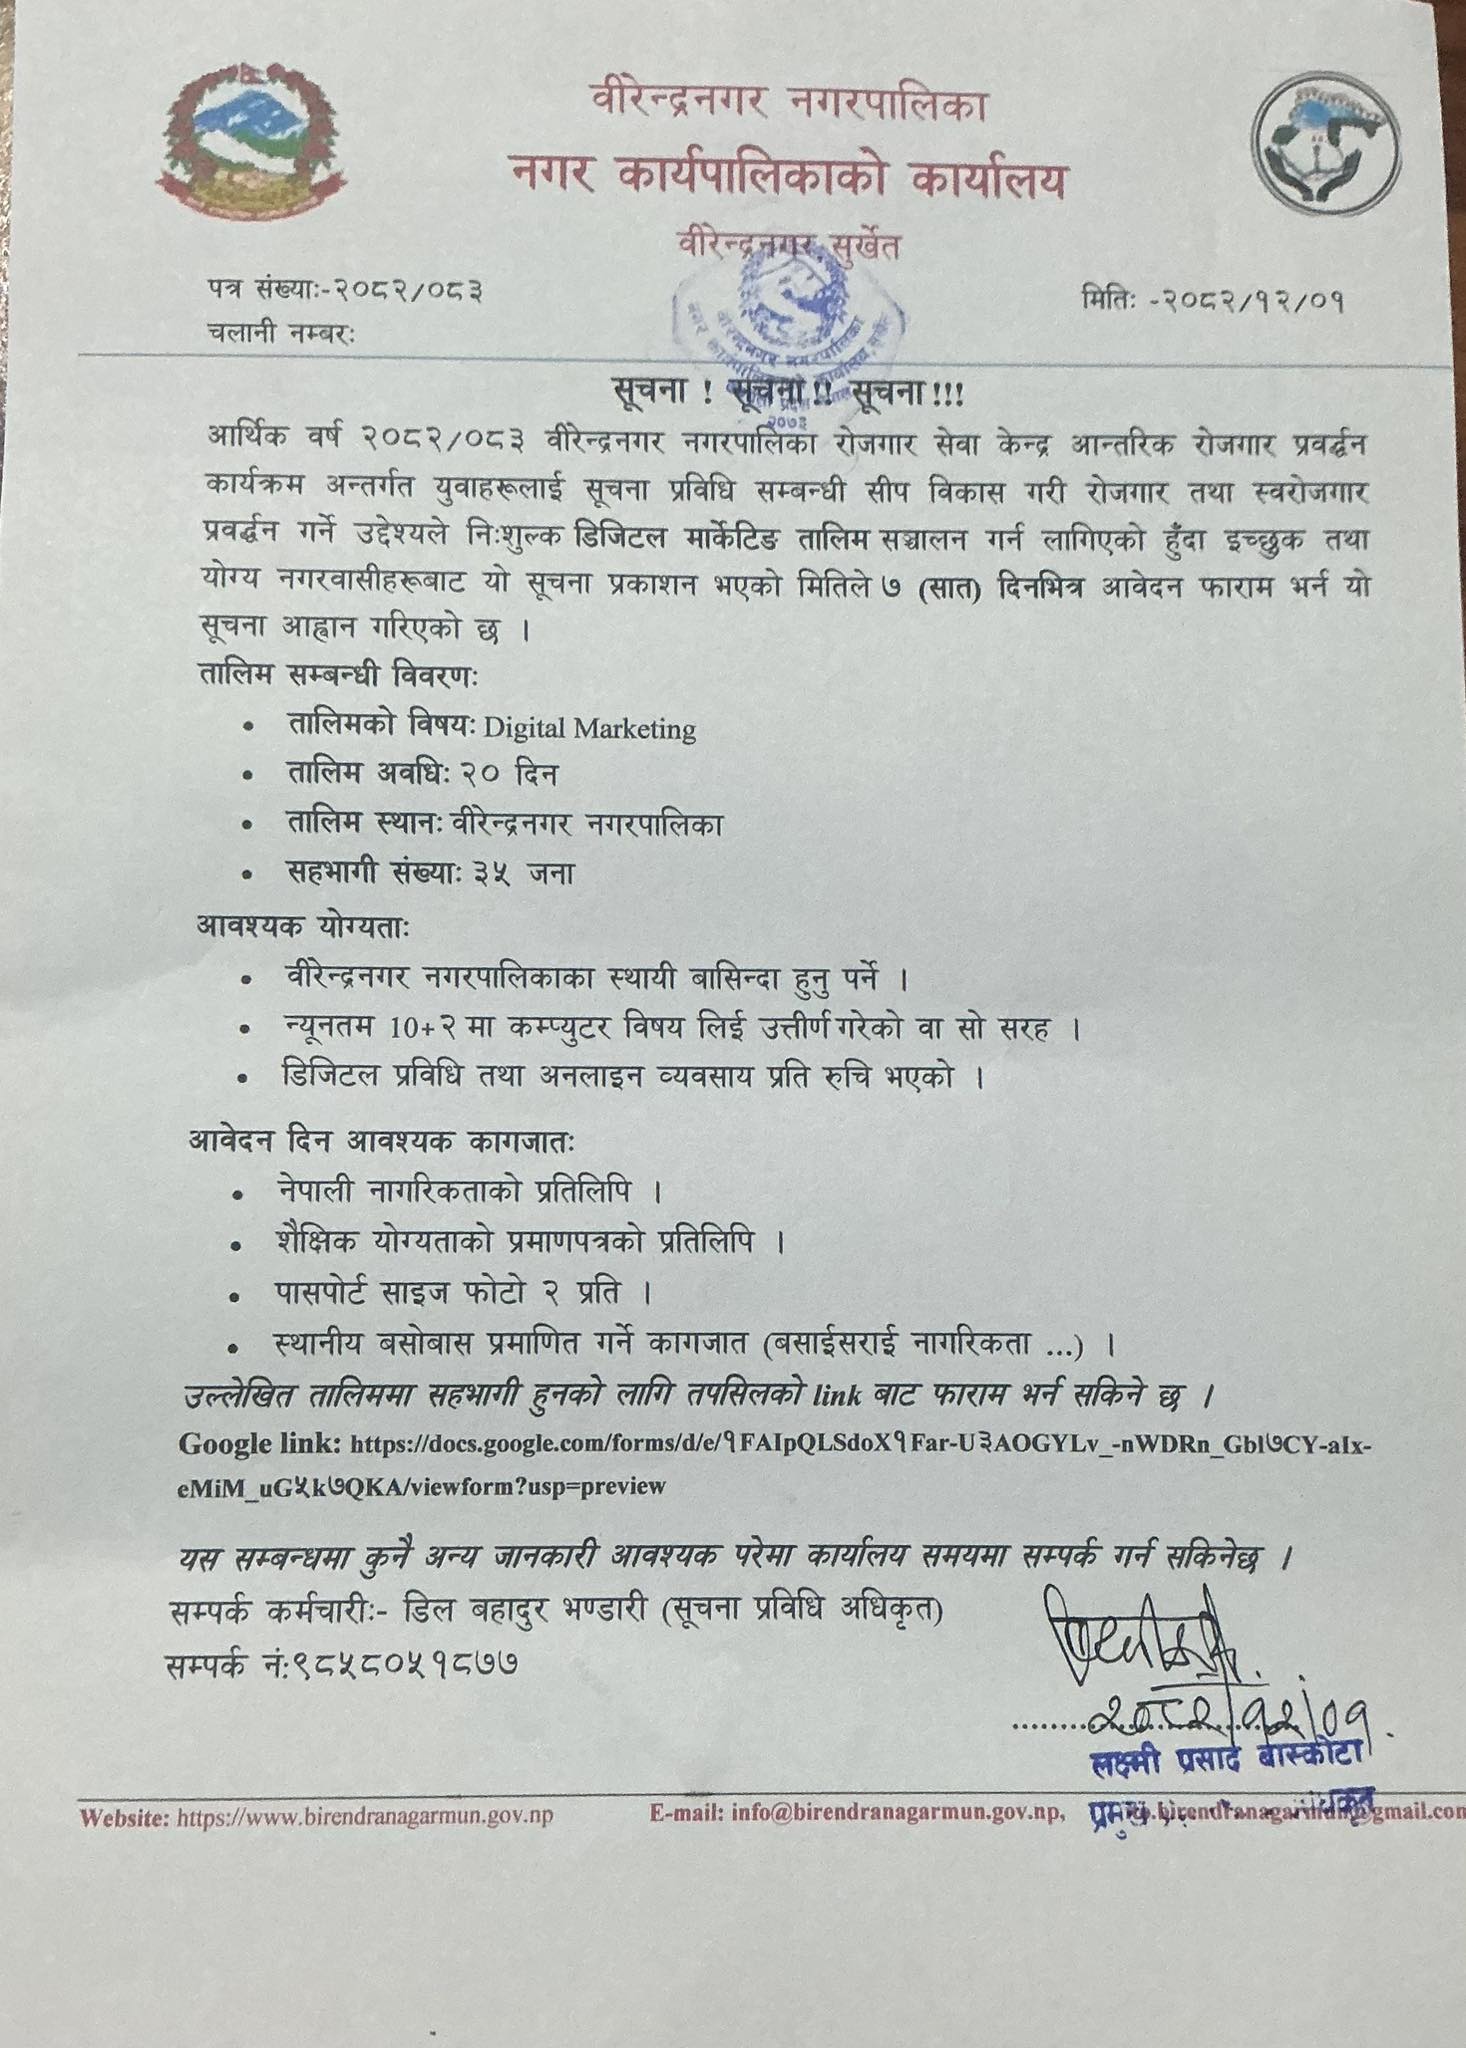 वीरेन्द्रनगर नगरपालिका
नगर कार्यपालिकाको कार्यालय
वीरेन्द्रनगर, सुर्खेत
पत्र संख्याः-२०८२/०८३
मितिः -२०८२/१२/०१
चलानी नम्बरः
सूचना ! सूचना !! सूचना !!!
आर्थिक वर्ष २०८२/०८३ वीरेन्द्रनगर नगरपालिका रोजगार सेवा केन्द्र आन्तरिक रोजगार प्रवर्द्धन
कार्यक्रम अन्तर्गत युवाहरूलाई सूचना प्रविधि सम्बन्धी सीप विकास गरी रोजगार तथा स्वरोजगार
प्रवर्द्धन गर्ने उद्देश्यले निःशुल्क डिजिटल मार्केटिङ तालिम सञ्चालन गर्न लागिएको हुँदा इच्छुक तथा
योग्य नगरवासीहरूबाट यो सूचना प्रकाशन भएको मितिले ७ (सात) दिनभित्र आवेदन फाराम भर्न यो
सूचना आह्वान गरिएको छ ।
तालिम सम्बन्धी विवरणः
• तालिमको विषयः Digital Marketing
• तालिम अवधिः २० दिन
• तालिम स्थानः वीरेन्द्रनगर नगरपालिका
• सहभागी संख्याः ३५ जना
आवश्यक योग्यताः
• वीरेन्द्रनगर नगरपालिकाका स्थायी बासिन्दा हुनु पर्ने ।
• न्यूनतम 10+२ मा कम्प्युटर विषय लिई उत्तीर्ण गरेको वा सो सरह ।
• डिजिटल प्रविधि तथा अनलाइन व्यवसाय प्रति रुचि भएको ।
आवेदन दिन आवश्यक कागजातः
• नेपाली नागरिकताको प्रतिलिपि ।
• शैक्षिक योग्यताको प्रमाणपत्रको प्रतिलिपि ।
• पासपोर्ट साइज फोटो २ प्रति ।
• स्थानीय बसोबास प्रमाणित गर्ने कागजात (बसाईसराई नागरिकता ...) ।
उल्लेखित तालिममा सहभागी हुनको लागि तपसिलको link बाट फाराम भर्न सकिने छ ।
Google link: https://docs.google.com/forms/d/e/१FAIpQLSdoX१Far-U३AOGYLv_-nWDRn_Gbl७CY-aIx-
eMiM_uG५k७QKA/viewform?usp=preview
यस सम्बन्धमा कुनै अन्य जानकारी आवश्यक परेमा कार्यालय समयमा सम्पर्क गर्न सकिनेछ ।
सम्पर्क कर्मचारीः- डिल बहादुर भण्डारी (सूचना प्रविधि अधिकृत)
सम्पर्क नं:९८५८०५१८७७
२०८२/१२/०१
लक्ष्मी प्रसाद बास्कोटा
प्रमुख
Website: https://www.birendranagarmun.gov.np E-mail: info@birendranagarmun.gov.np,